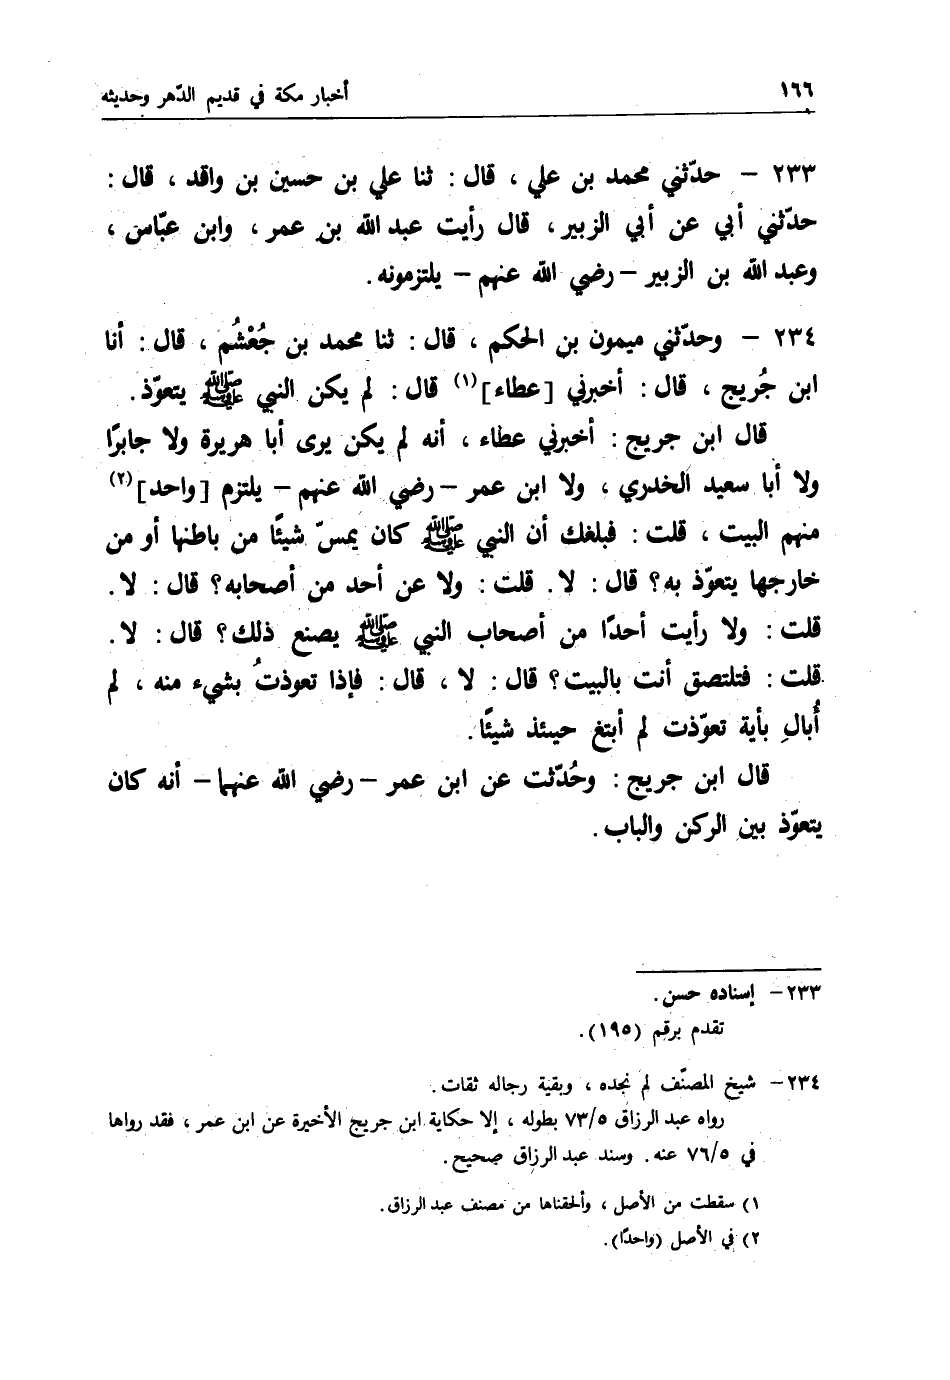 ١٦٦ أخبار مكة في قديم الدّهر وحديثه
٢٣٣ – حدّثني محمد بن علي ، قال : ثنا علي بن حسين بن واقد ، قال :
حدّثني أبي عن أبي الزبير، قال رأيت عبد الله بن عمر، وابن عبّاس ،
وعبد الله بن الزبير – رضي الله عنهم – يلتزمونه.
٢٣٤ – وحدّثني ميمون بن الحكم ، قال : ثنا محمد بن جُعْشُم ، قال : أنا
ابن جُريج ، قال : أخبرني [عطاء](١) قال : لم يكن النبي ﷺ يتعوّذ.
قال ابن جريج : أخبرني عطاء ، أنه لم يكن يرى أبا هريرة ولا جابرًا
ولا أبا سعيد الخدري ، ولا ابن عمر – رضي الله عنهم – يلتزم [واحد](٢)
منهم البيت ، قلت : فبلغك أن النبي ﷺ كان يمسّ شيئًا من باطنها أو من
خارجها يتعوّذ به؟ قال : لا. قلت : ولا عن أحد من أصحابه؟ قال : لا.
قلت : ولا رأيت أحدًا من أصحاب النبي ﷺ يصنع ذلك؟ قال : لا.
قلت : فتلتصق أنت بالبيت؟ قال : لا ، قال : فإذا تعوذتُ بشيء منه ، لم
أُبالِ بأية تعوّذت لم أبتغ حيىئذ شيئًا.
قال ابن جريج : وحُدّثت عن ابن عمر – رضي الله عنهما – أنه كان
يتعوّذ بين الركن والباب.
٢٣٣– إسناده حسن.
تقدم برقم (١٩٥).
٢٣٤– شيخ المصنّف لم نجده ، وبقية رجاله ثقات.
رواه عبد الرزاق ٧٣/٥ بطوله ، إلا حكاية ابن جريج الأخيرة عن ابن عمر ، فقد رواها
في ٧٦/٥ عنه. وسند عبد الرزاق صحيح.
١) سقطت من الأصل ، وألحقناها من مصنف عبد الرزاق.
٢) في الأصل (واحدًا).